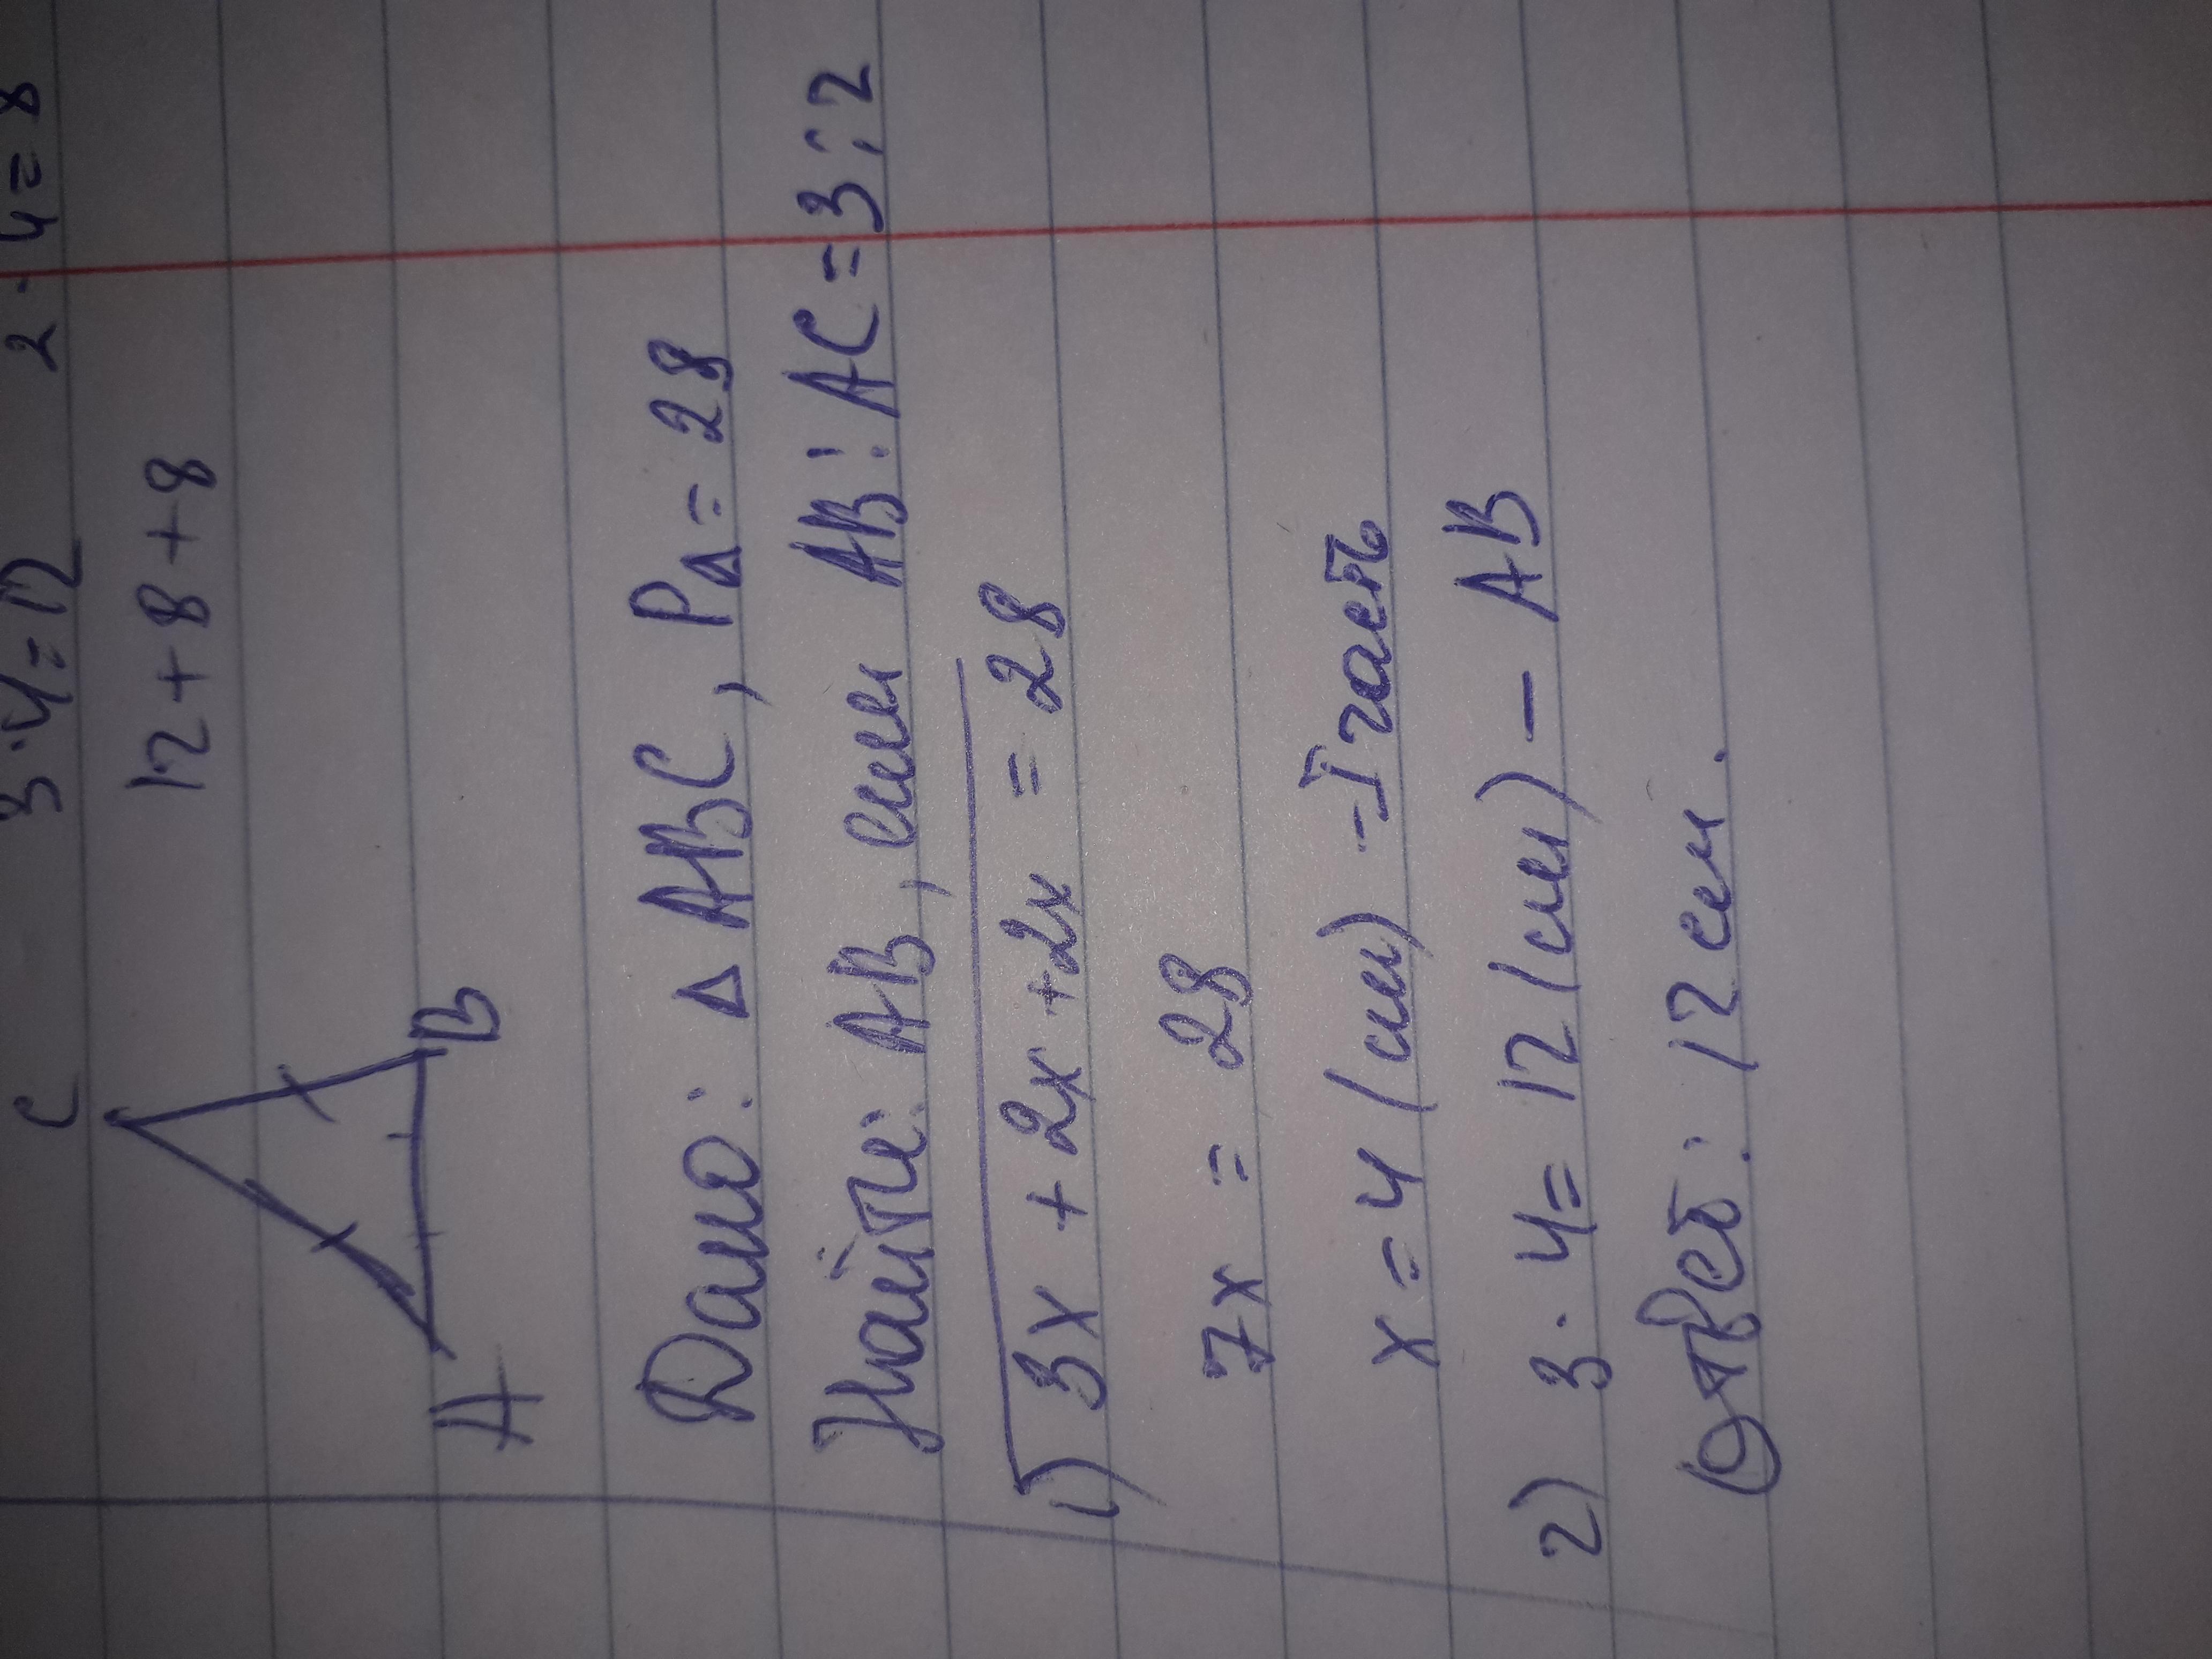 3·4=12 2·4=8
C
12+8+8
A B
Дано: Δ ABC, PΔ=28
Найти: AB, если AB:AC=3:2
1) 3x + 2x +2x = 28
7x = 28
x=4 (см) - I часть
2) 3·4=12 (см) - AB
Ответ: 12 см.